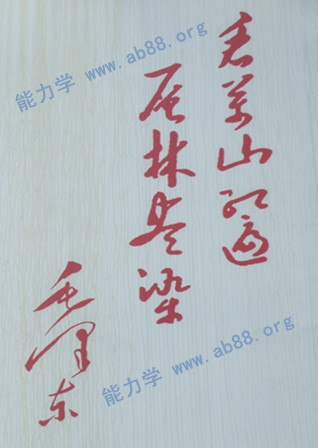 看万山红遍
层林尽染
毛泽东
能力学 www.ab88.org
能力学 www.ab88.org